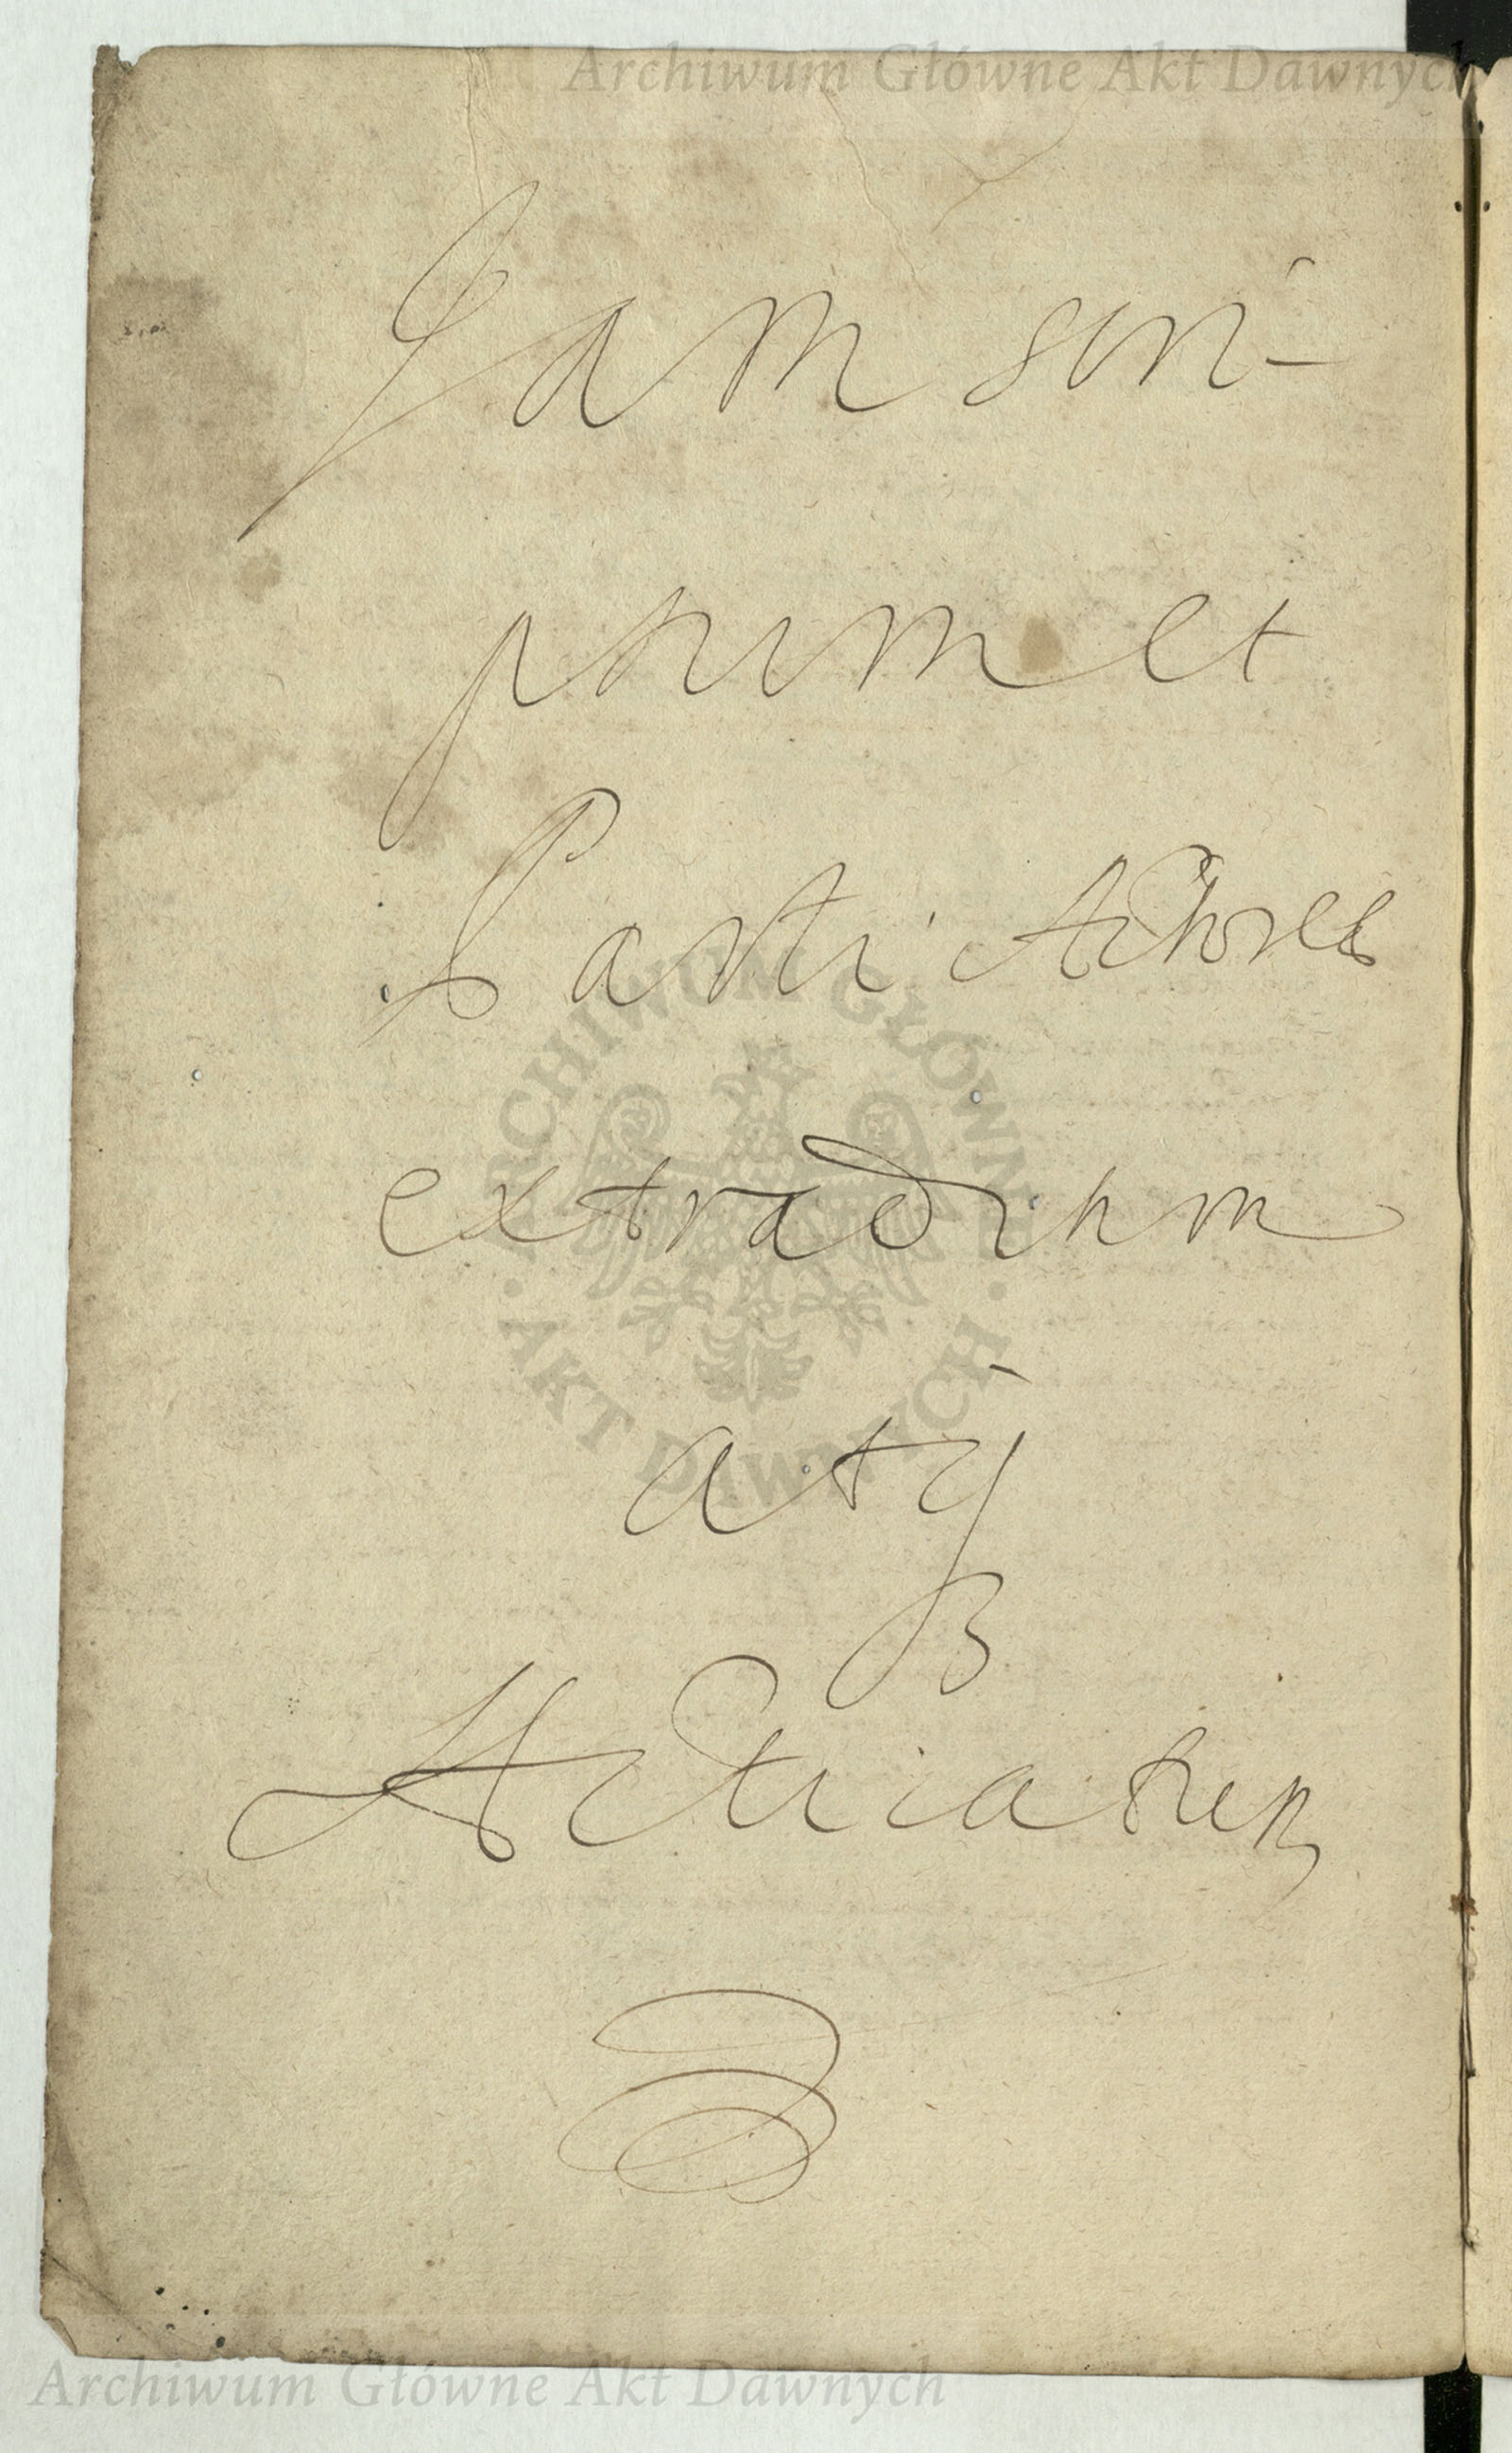 Archiwum Główne Akt Dawnych
Jam scri-
ptum et
Parti Actorea
extraditum
ARCHIWUM GŁÓWNE
AKT DAWNYCH
Archiwum Główne Akt Dawnych